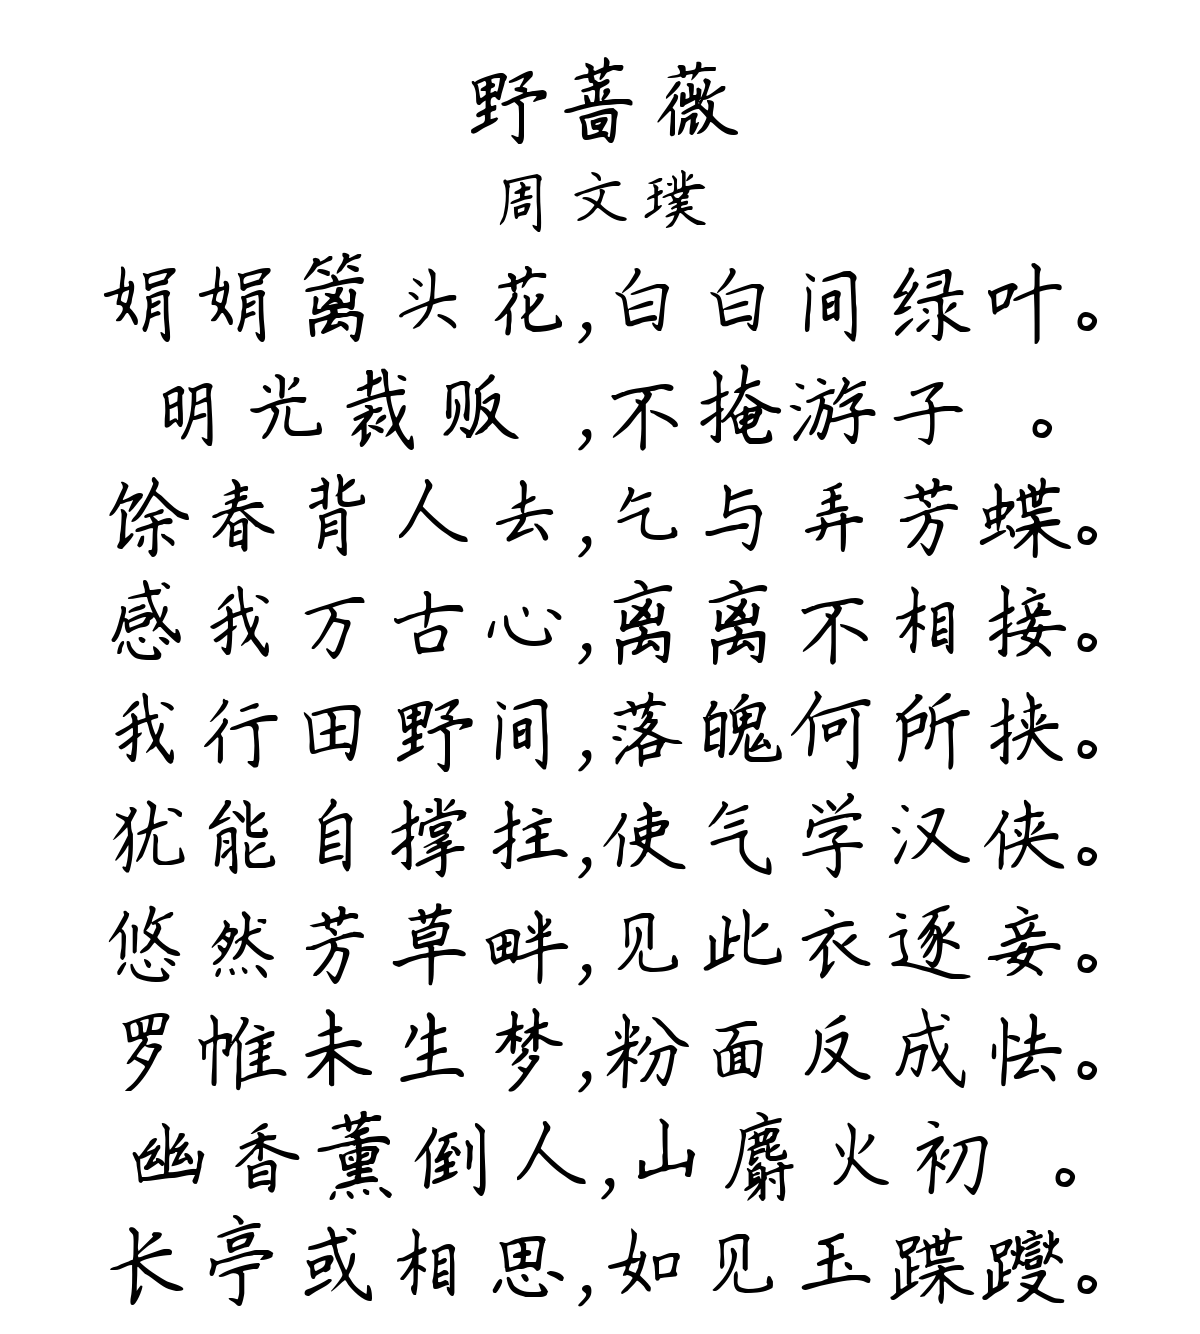 野蔷薇
周文璞
娟娟篱头花,白白间绿叶。
明光裁贩 ,不掩游子 。
馀春背人去,乞与弄芳蝶。
感我万古心,离离不相接。
我行田野间,落魄何所挟。
犹能自撑拄,使气学汉侠。
悠然芳草畔,见此衣逐妾。
罗帷未生梦,粉面反成怯。
幽香薰倒人,山麝火初 。
长亭或相思,如见玉蹀躞。